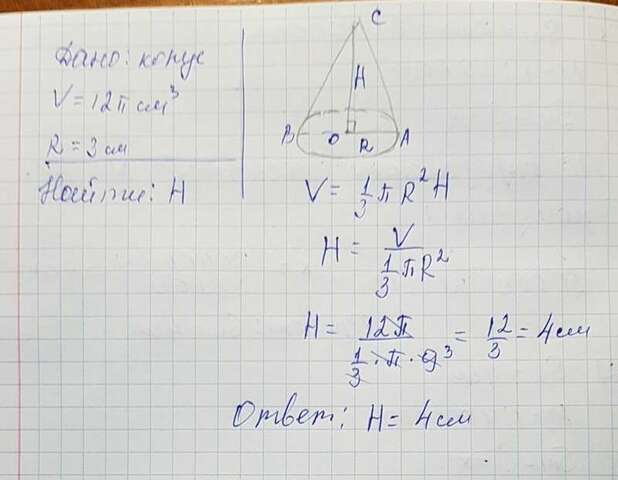 Дано: конус
V = 12π см³
R = 3 см
Найти: H
C
H
B O R A
V = 1/3 π R² H
H = V / (1/3 π R²)
H = 12π / (1/3 · π · 9 3) = 12/3 = 4 см
Ответ: H = 4 см